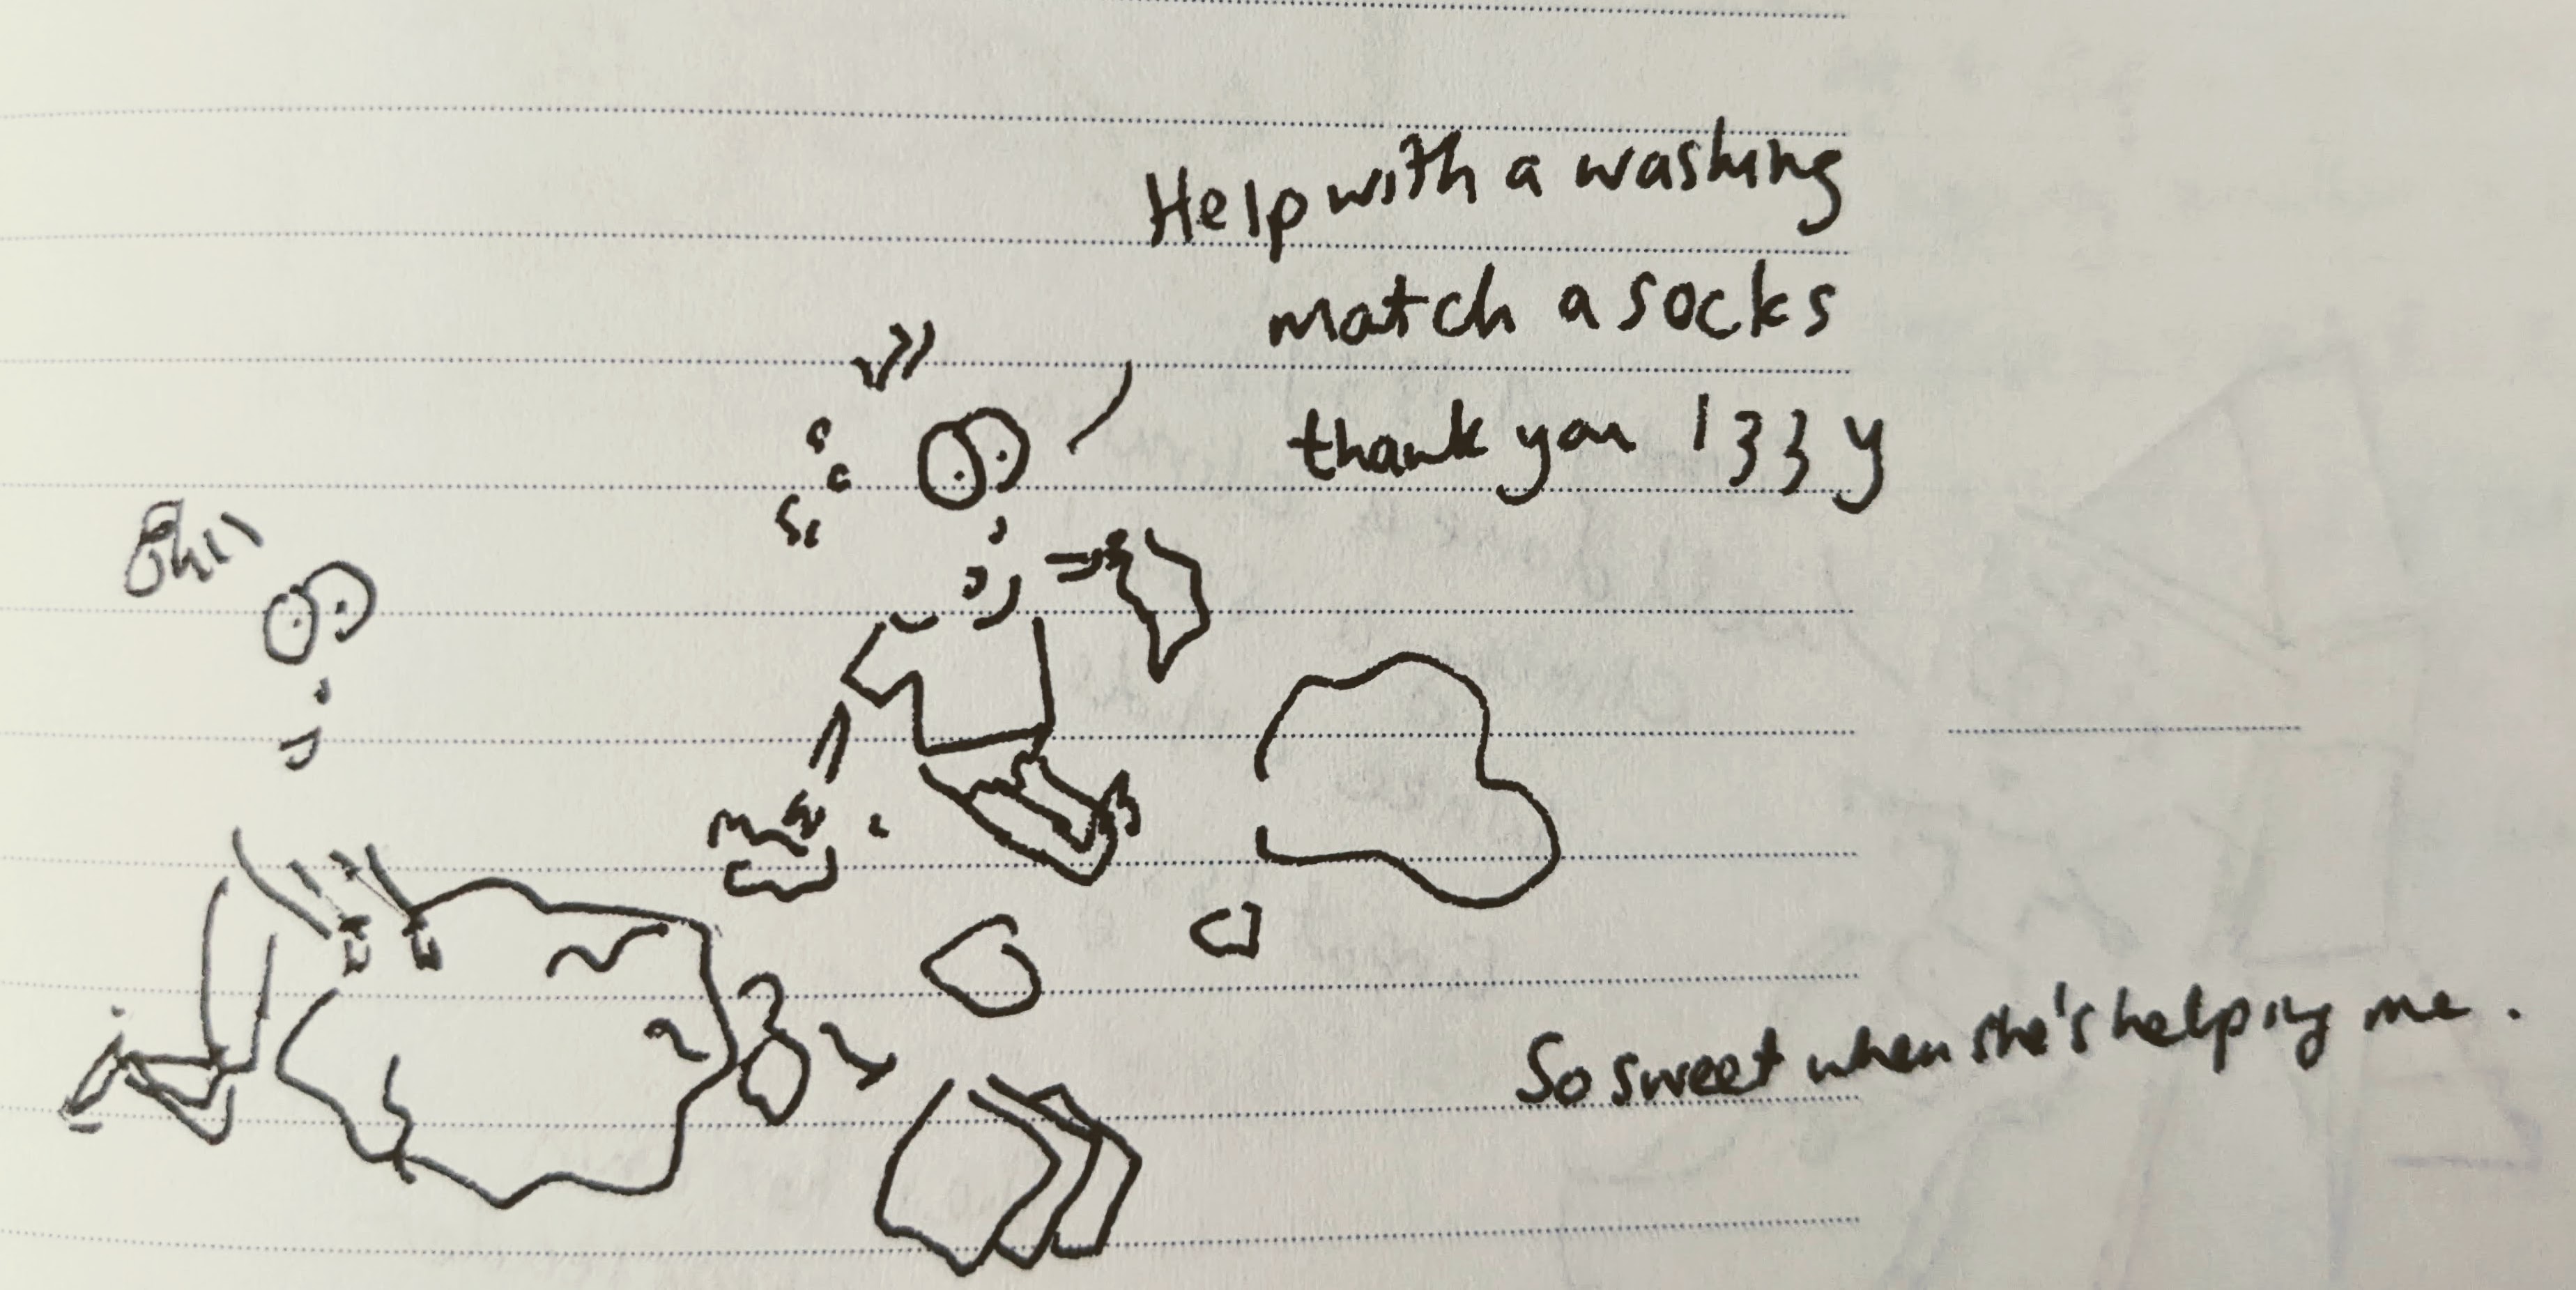 Help with a washing
match a socks
thank you Izzy
So sweet when she's helping me.